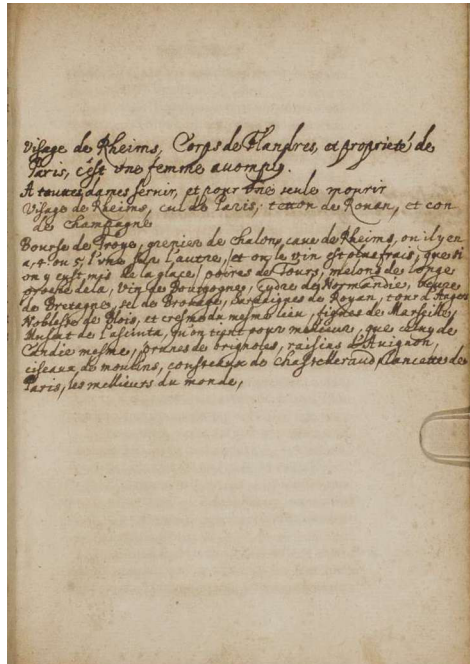 Visage de Rheims, Corps de Flandres, et proprieté de
Paris, c'est une femme
A toutes dames servir, et pour une seule mourir
Visage de Rheims, cul de Paris, tetton de Rouan, et con
de Champagne
Bourse de Troye, grenier de Chalons, cave de Rheims, ou il y en
a, 4 ou 5, l'une sur l'autre, et ou le vin est plus frais, que si
on y eust mis de la glace, poires de Tours, melons de Langes
vin de Bourgogne, cydre de Normandie, beurre
de Bretagne, sel de Brouage, de Royan,
Noblesse de Blois, et cresme du mesme lieu, figues de Marseille,
Muscat de la Sciuta, qu'on tient pour meilleur, que celuy de
Candie mesme, prunes de brignoles, raisins d'Avignon,
ciseaux de moulins, cousteaux de Chastelleraud, lancettes de
Paris, les meilleurs du monde,